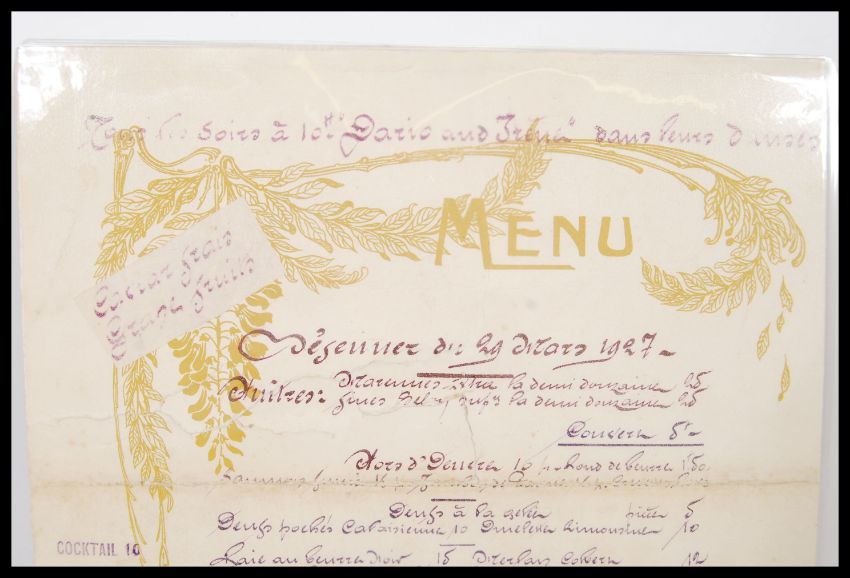 Tous les soirs à 10h "Dario and Irène" dans leurs danses
MENU
Caviar frais
Grape Fruits
Déjeuner du 29 Mars 1927
Huîtres: Marennes extra la demi douzaine 25
fines Belon supres la demi douzaine 25
Couvert 5f
Hors d'Oeuvre 10 Rond de beurre 1f50
Saumon fumé
Oeufs à la gelée pièce 5
Oeufs pochés Cabaisienne 10 Omelette Limousine 10
COCKTAIL 10
Raie au beurre noir 15 Merlans Colbert 12